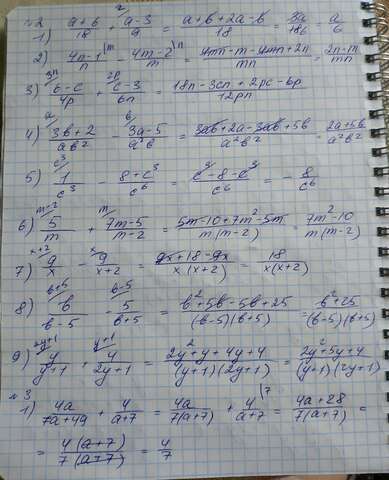 №2
1) (a+b)/18 + (a-3)/9 = (a+b+2a-b)/18 = 3a/18 = a/6
2) (4n-1)/n - (4m-2)/m = (4mn-m-4mn+2n)/mn = (2n-m)/mn
3) (6-c)/4p + (c-3)/6n = (18n-3cn+2pc-6p)/12pn
4) (3b+2)/ab² - (3a-5)/a²b = (3ab+2a-3ab+5b)/a²b² = (2a+5b)/a²b²
5) 1/c³ - (8+c³)/c⁶ = (c³-8-c³)/c⁶ = -8/c⁶
6) 5/m + (7m-5)/(m-2) = (5m-10+7m²-5m)/m(m-2) = (7m²-10)/m(m-2)
7) 9/x - 9/(x+2) = (9x+18-9x)/x(x+2) = 18/x(x+2)
8) b/(b-5) - 5/(b+5) = (b²+5b-5b+25)/(b-5)(b+5) = (b²+25)/(b-5)(b+5)
9) y/(y+1) + 4/(2y+1) = (2y²+y+4y+4)/(y+1)(2y+1) = (2y²+5y+4)/(y+1)(2y+1)
№3
1) 4a/(7a+49) + 4/(a+7) = 4a/7(a+7) + 4/(a+7) = (4a+28)/7(a+7) =
= 4(a+7)/7(a+7) = 4/7